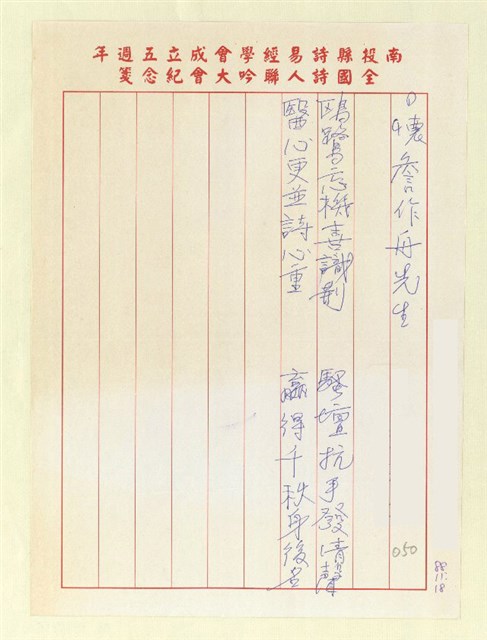 南投縣詩易經學會成立五週年
全國詩人聯吟大會紀念箋
懷詹作舟先生
鷗鷺忘機喜識荊 騷壇抗手發清聲
醫心更並詩心重 贏得千秋身後名
050
88.11.18